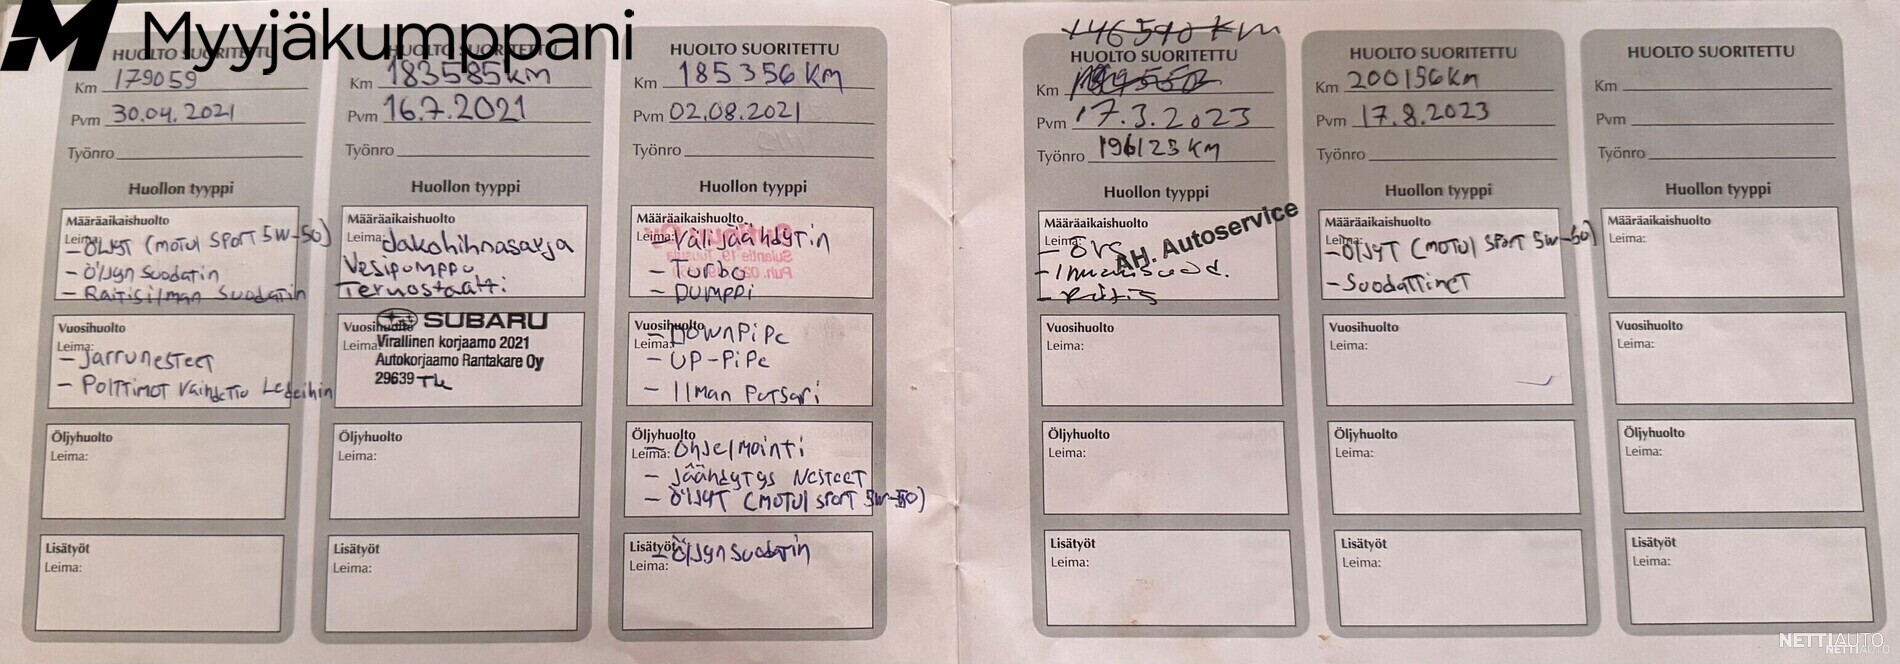 Myyjäkumppani
HUOLTO SUORITETTU
Km 179059
Pvm 30.04.2021
Työnro
Huollon tyyppi
Määräaikaishuolto
Leima:
- ÖLJYT (MOTUL SPORT 5W-50)
- Öljyn suodatin
- Raitisilman suodatin
Vuosihuolto
Leima:
- Jarrunesteet
- Polttimot vaihdettu Ledeihin
Öljyhuolto
Leima:
Lisätyöt
Leima:
HUOLTO SUORITETTU
Km 183585km
Pvm 16.7.2021
Työnro
Huollon tyyppi
Määräaikaishuolto
Leima: Jakohihnasarja
Vesipumppu
Termostaatti
Vuosihuolto
Leima:
SUBARU
Virallinen korjaamo 2021
Autokorjaamo Rantakare Oy
29639
Öljyhuolto
Leima:
Lisätyöt
Leima:
HUOLTO SUORITETTU
Km 185356 KM
Pvm 02.08.2021
Työnro
Huollon tyyppi
Määräaikaishuolto
Leima:
- Välijäähdytin
- Turbo
- Dumppi
Vuosihuolto
Leima:
- DOWNPiPe
- UP-PiPe
- Ilman Putsari
Öljyhuolto
Leima: Ohjelmointi
- Jäähdytys Nesteet
- Öljyt (MOTUL SPORT 5W-50)
Lisätyöt
- Öljyn suodatin
Leima:
HUOLTO SUORITETTU
Km
Pvm 17.3.2023
Työnro 196123 KM
Huollon tyyppi
Määräaikaishuolto
Leima:
AH. Autoservice
Vuosihuolto
Leima:
Öljyhuolto
Leima:
Lisätyöt
Leima:
HUOLTO SUORITETTU
Km 200156Km
Pvm 17.8.2023
Työnro
Huollon tyyppi
Määräaikaishuolto
Leima:
- ÖljYT (MOTUL SPORT 5W-50)
- Suodattimet
Vuosihuolto
Leima:
Öljyhuolto
Leima:
Lisätyöt
Leima:
HUOLTO SUORITETTU
Km
Pvm
Työnro
Huollon tyyppi
Määräaikaishuolto
Leima:
Vuosihuolto
Leima:
Öljyhuolto
Leima:
Lisätyöt
Leima:
NETTIAUTO
NETTIAUTO